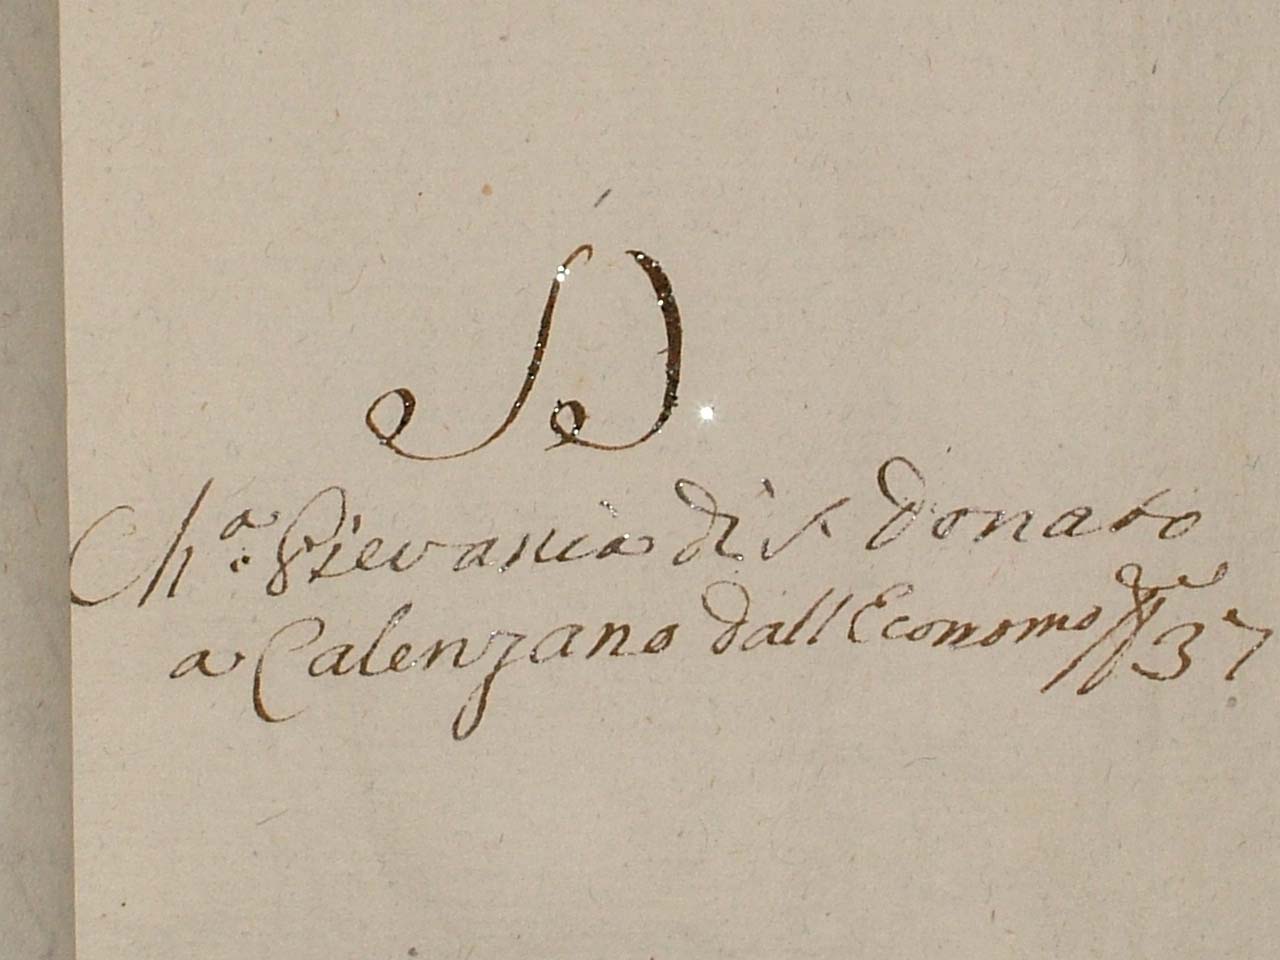 D.
Ch.ª Pievania di S. Donato
a Calenzano dall'Economo 37